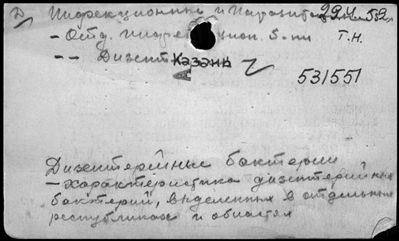 Д Инфекционные и Паразит 29.4.52
- Отд. инфекцион. б-ни Т.Н.
- - Дизент Казань
531551
Дизентерийные бактерии
- характеристика дизентерийных
бактерий, выделенных в отдельных
республиках и областях